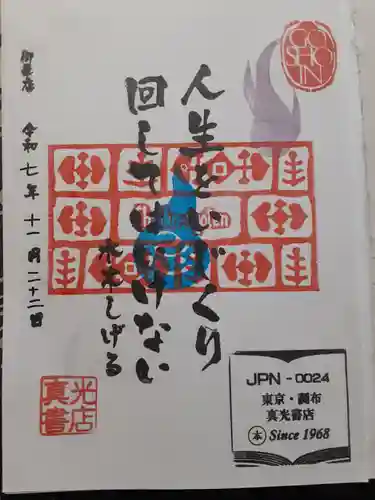 GO
SHO
IN
人生をいじくり
回してはいけない
水木しげる
御来店
令和七年十一月二十二日
真光
書店
JPN - 0024
東京・調布
真光書店
本 Since 1968